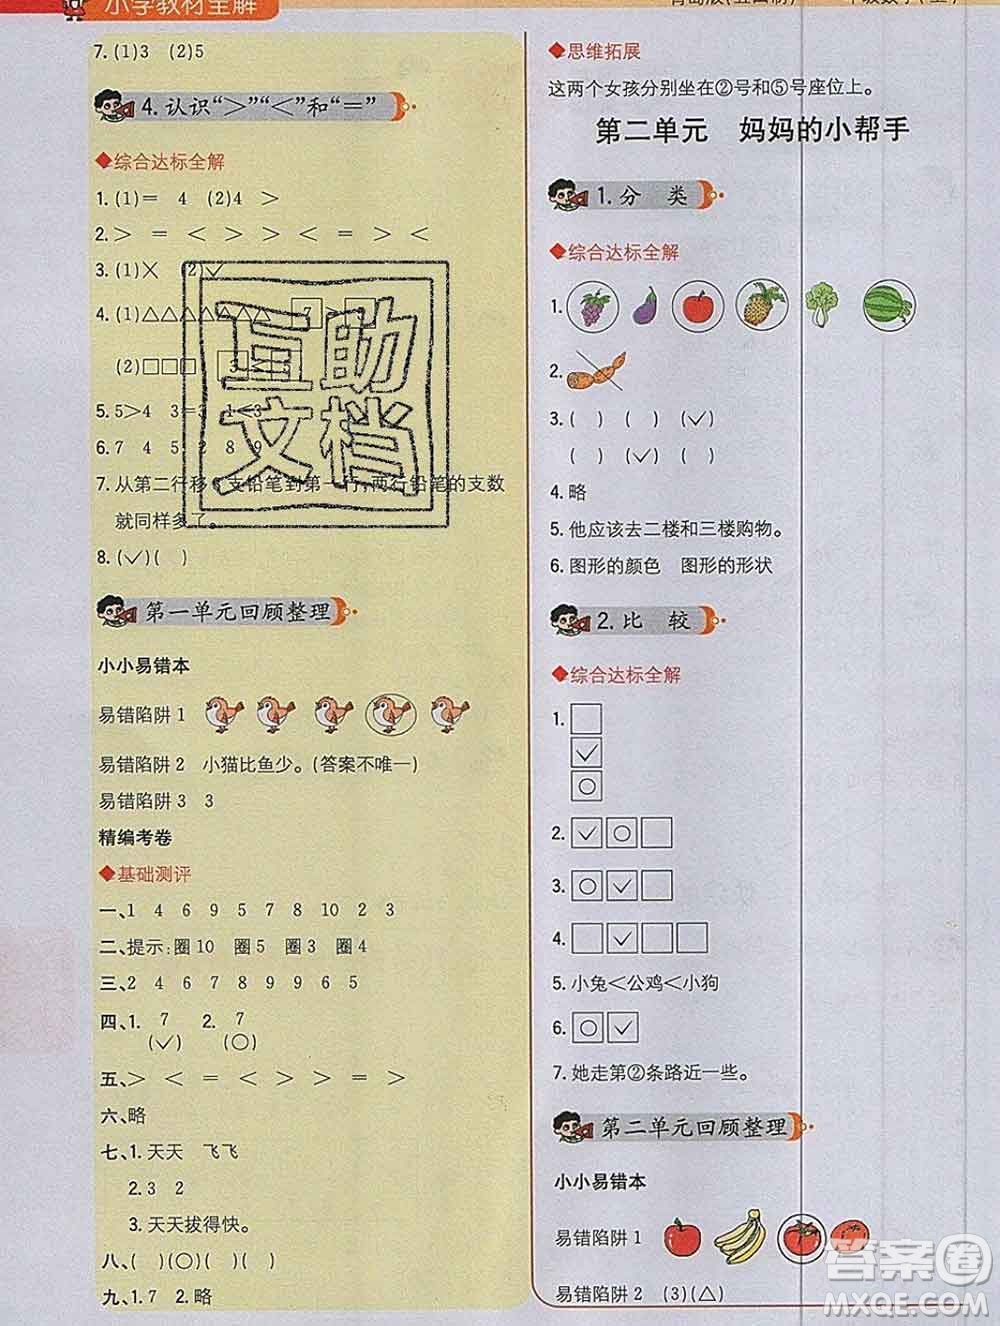 小学教材全解
7. (1)3 (2)5
4. 认识“>”“<”和“=”
◆综合达标全解
1. (1)= 4 (2)4 >
2. > = < > > < = > <
3. (1)× (2)✓
4. (1)△△△△△△△
(2)□□□ 3 < 5
5. 5>4 3=3 1<3
6. 7 4 5 2 8 9
7. 从第二行移 支铅笔到第一行,两行铅笔的支数
就同样多了。
8. (✓)( )
第一单元回顾整理
小小易错本
易错陷阱 1
易错陷阱 2 小猫比鱼少。(答案不唯一)
易错陷阱 3 3
精编考卷
◆基础测评
一、1 4 6 9 5 7 8 10 2 3
二、提示:圈10 圈5 圈3 圈4
三、2 4 6 7 8 9 9 6 5
四、1. 7 2. 7
(✓) (○)
五、> < = < > > = < >
六、略
七、1. 天天 飞飞
2. 3 2
3. 天天拔得快。
八、( )(○)( )( )
九、1. 7 2. 略
◆思维拓展
这两个女孩分别坐在②号和⑤号座位上。
第二单元 妈妈的小帮手
1. 分 类
◆综合达标全解
1.
2.
3. ( ) ( ) (✓)
( ) (✓) ( )
4. 略
5. 他应该去二楼和三楼购物。
6. 图形的颜色 图形的形状
2. 比 较
◆综合达标全解
1. □
✓
○
2. ✓ ○ □
3. ○ ✓ □
4. □ ✓ □ □
5. 小兔<公鸡<小狗
6. ○ ✓
7. 她走第②条路近一些。
第二单元回顾整理
小小易错本
易错陷阱 1
易错陷阱 2 (3)(△)
互助
文档
答案圈
MXQE.COM